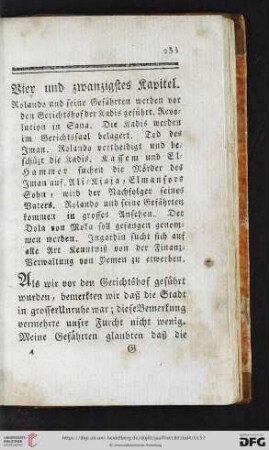 153
Vier und zwanzigstes Kapitel.
Rolando und seine Gefährten werden vor
den Gerichtshof der Kadis geführt. Revo-
lution in Sana. Die Kadis werden
im Gerichtssaal belagert. Tod des
Iman. Rolando vertheidigt und be-
schützt die Kadis. Kassem und El-
Hammer suchen die Mörder des
Iman auf. Ali/Riaja, Elmansors
Sohn, wird der Nachfolger seines
Vaters. Rolando und seine Gefährten
kommen in grosses Ansehen. Der
Dola von Moka soll gefangen genom-
men werden. Ingardin sucht sich auf
alle Art Kenntniß von der Finanz-
Verwaltung von Yemen zu erwerben.
Als wir vor den Gerichtshof geführt
wurden, bemerkten wir daß die Stadt
in grosser Unruhe war; diese Bemerkung
vermehrte unsre Furcht nicht wenig.
Meine Gefährten glaubten daß die
4 G
UNIVERSITÄTS-
BIBLIOTHEK
HEIDELBERG
DFG